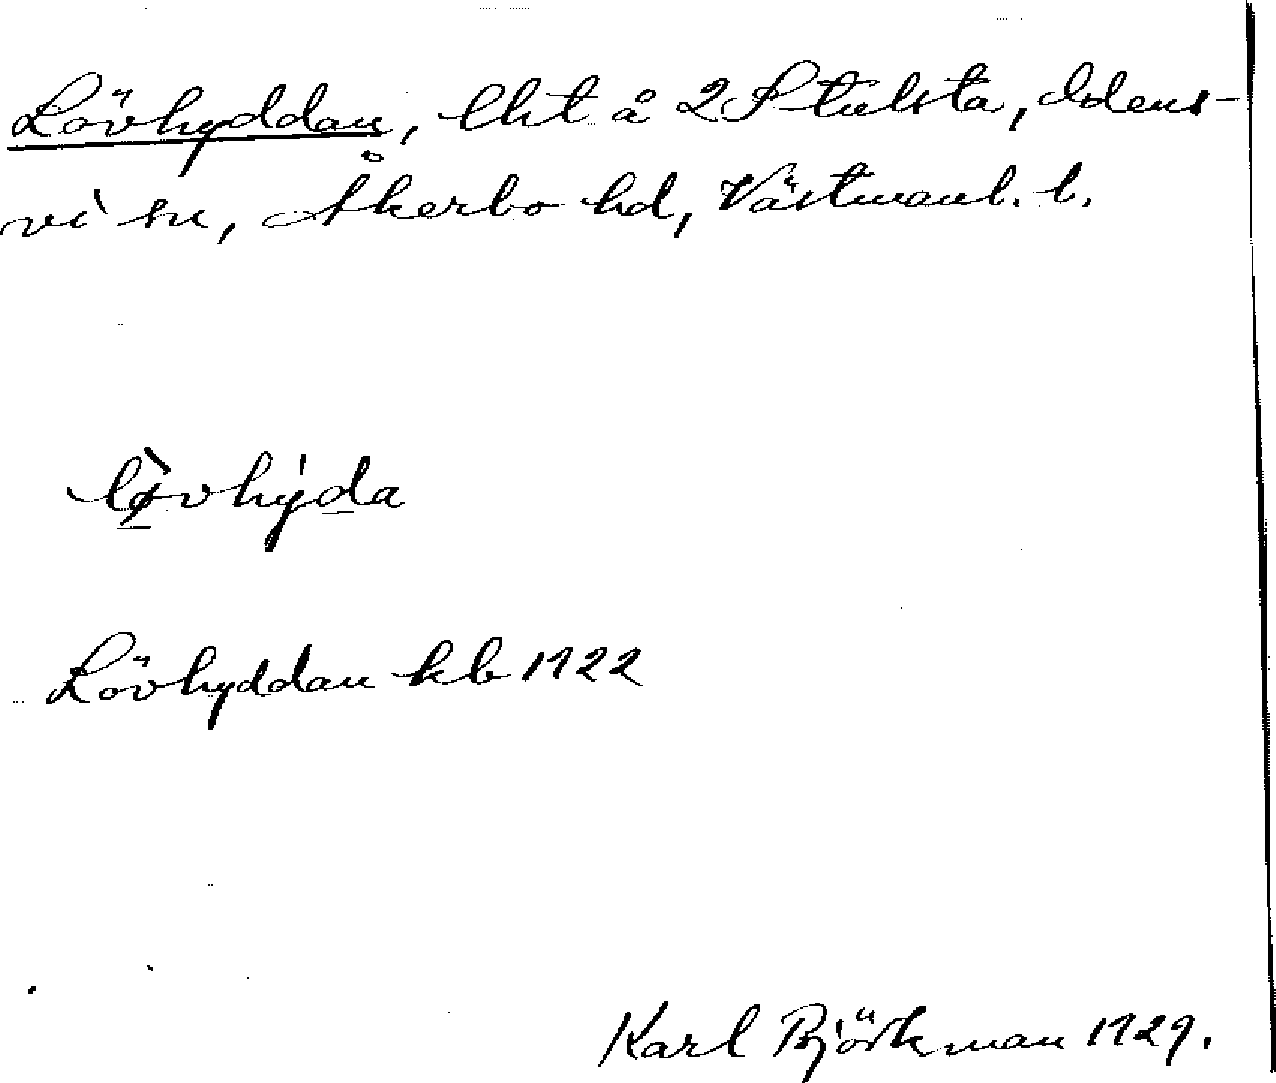 Lövhyddan, lht å 2 Stulsta, Odens-
vi sn, Åkerbo hd, Västmanl. l.
lø̀vhýda
Lövhyddan kb 1922
Karl Björkman 1929.